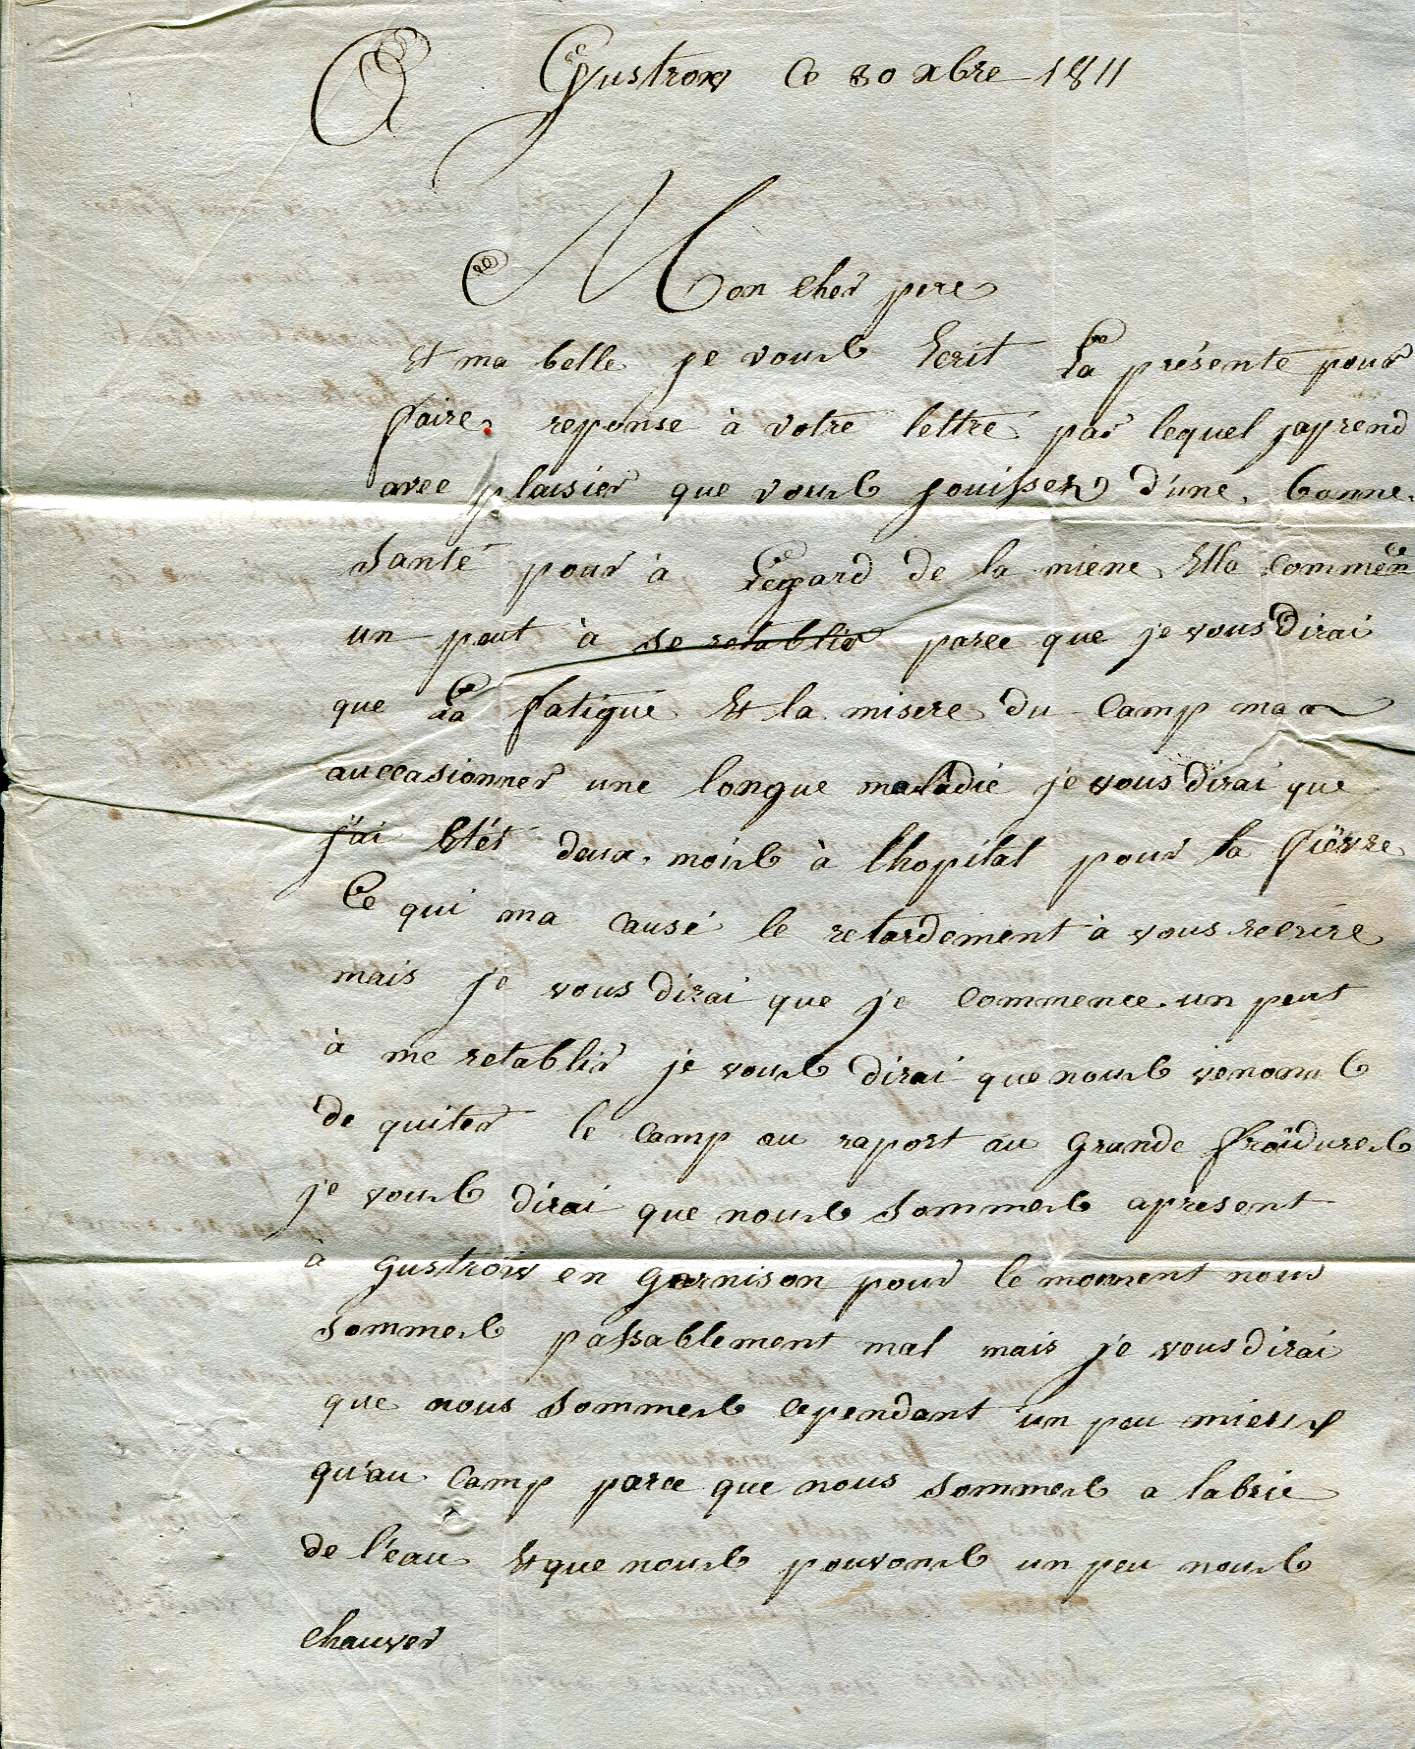 A Gustrow Ce 30 xbre 1811
Mon cher pere
Et ma belle je vous Ecrit La présente pour
faire reponse à votre lettre par lequel japrend
avec plaisier que vous jouissez d'une bonne
Santé pour à Legard de la miene Ella commence
un peut à se retablir parce que je vous dirai
que La fatigue Et la misere du Camp ma
auccasionner une longue maladie je vous dirai que
j'ai Etét deux mois à lhopital pour la fièvre
Ce qui ma Causé le retardement à vous recrire
mais je vous dirai que je Commence un peut
à me retablir je vous dirai que nous venons
de quiter le Camp au raport au grande froidures
je vous dirai que nous Sommes apresent
à gustrow en garnison pour le moment nous
Sommes passablement mal mais je vous dirai
que nous Sommes Cependant un peu mieux
qu'au Camp parce que nous Sommes a labrie
de l'eau Et que nous pouvons un peu nous
Chauver